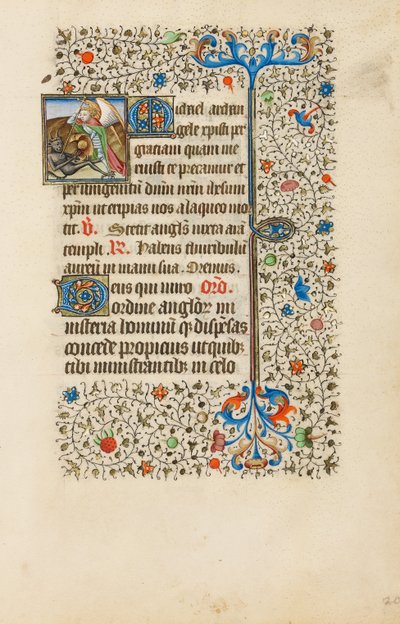 Michael archan
gele xp̄isti per
graciam quam me
ruisti te precamur et
per unigenitū dn̄m nr̄m ihesum
xpm̄ ut eripias nos a laqueo mor
tis. V̄. Stetit angl̄s iuxta aram
templi. R̄. Habens thuribulū
aureū in manu sua. Oremus.
Deus qui miro Orō.
ordine anglor̄ mi
nisteria hominū q̄ dispēsas
concede propicius ut quibꝫ
tibi ministrantibꝫ in celo
20